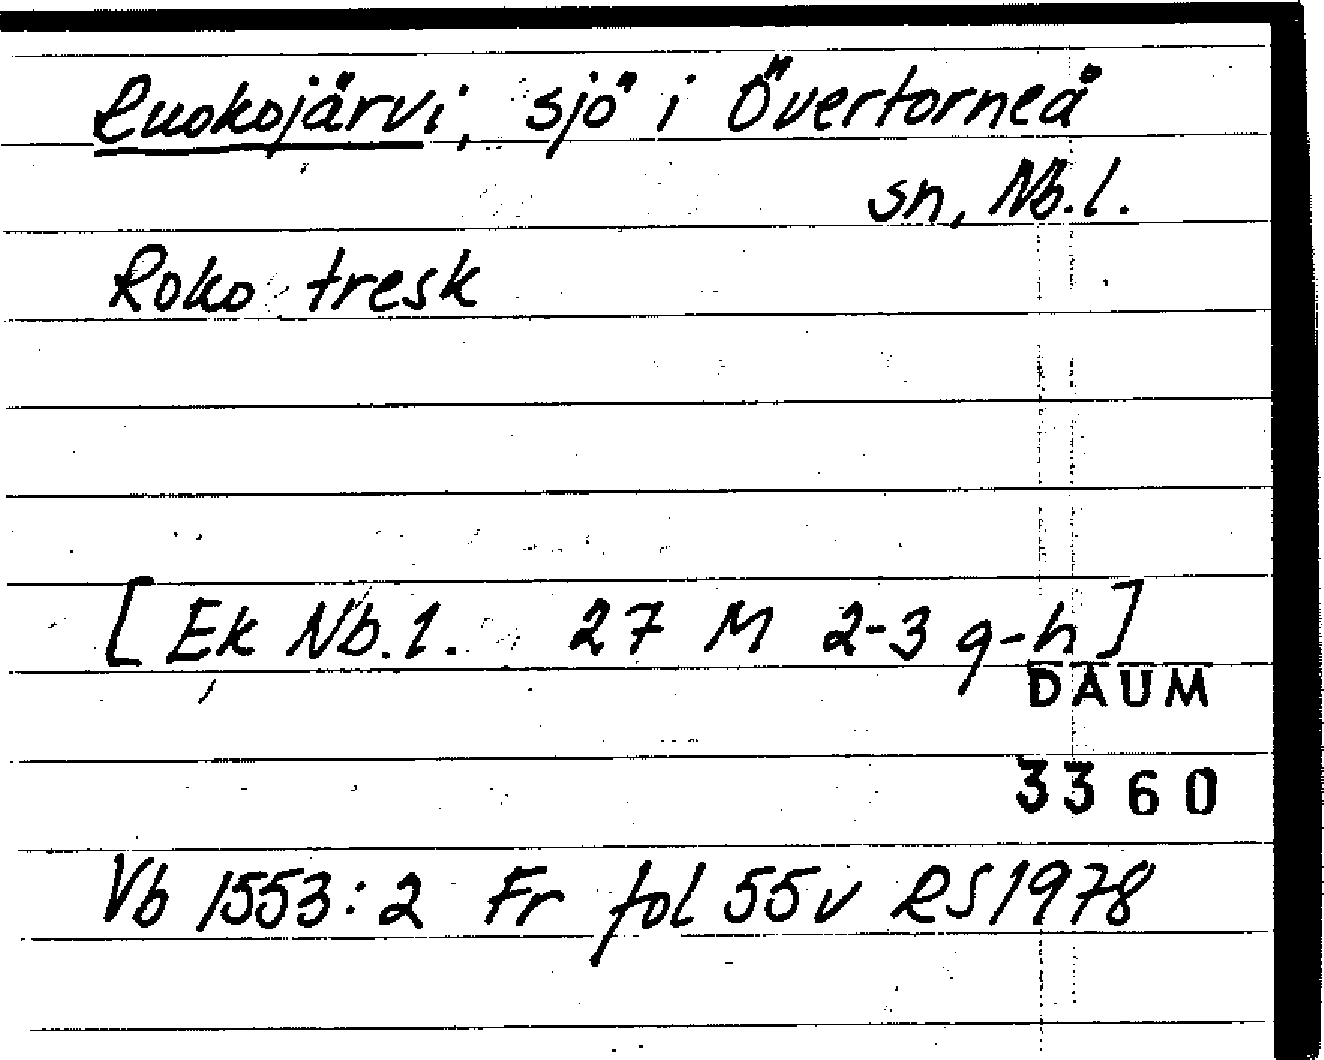 Ruokojärvi, sjö i Övertorneå
sn, Nb.l.
Roko tresk
[Ek Nb.l. 27 M 2-3 g-h]
DAUM
3360
Vb 1553:2 Fr fol 55v RS 1978